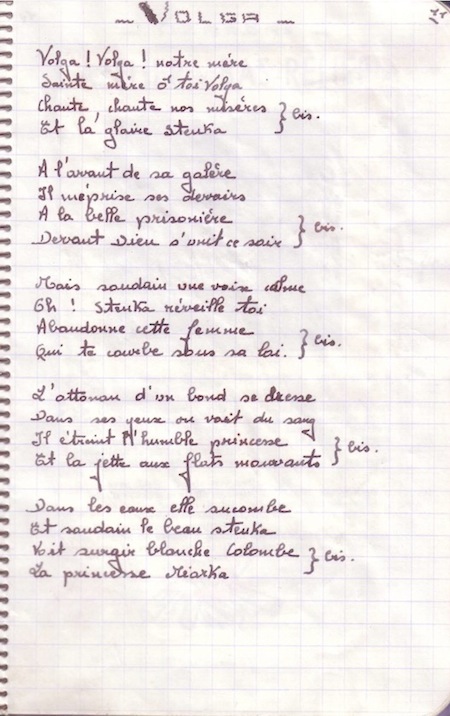 VOLGA
11
Volga ! Volga ! notre mère
Sainte mère ô toi Volga
Chante, chante nos misères } bis.
Et la gloire Stenka
A l'avant de sa galère
Il méprise ses devoirs
A la belle prisonière } bis.
Devant Dieu s'unit ce soir
Mais soudain une voix calme
Oh ! Stenka réveille toi
Abandonne cette femme } bis.
Qui te courbe sous sa loi.
L'attonan d'un bond se dresse
Dans ses yeux on voit du sang
Il étreint l'humble princesse } bis.
Et la jette aux flots mouvants
Dans les eaux elle sucombe
Et soudain le beau stenka
Voit surgir blanche Colombe } bis.
La princesse Miarka